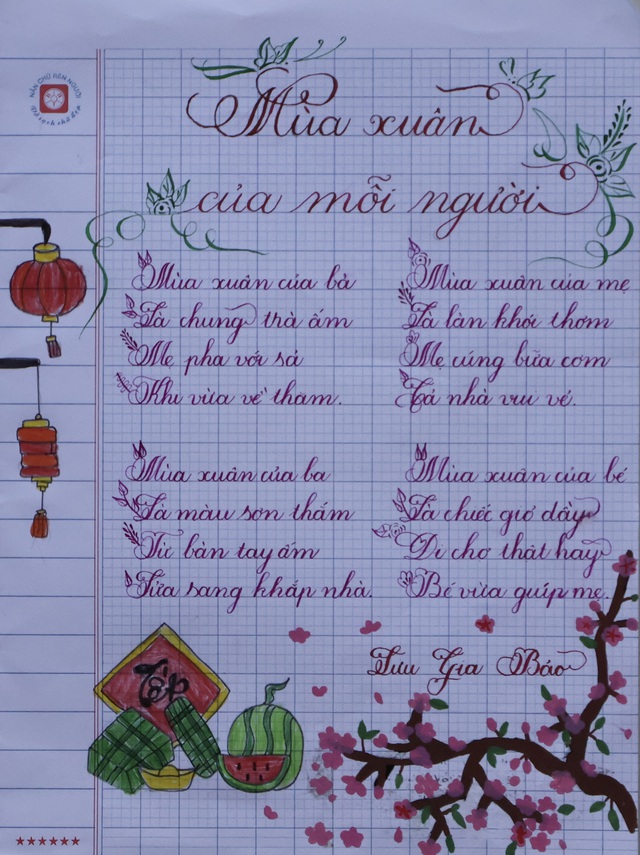 NẮN CHỮ RÈN NGƯỜI
Mùa xuân
của mỗi người
Mùa xuân của bà
Là chung trà ấm
Mẹ pha với sả
Khi vừa về thăm.
Mùa xuân của mẹ
Là làn khói thơm
Mẹ cúng bữa cơm
Cả nhà vui vẻ.
Mùa xuân của ba
Là màu sơn thắm
Từ bàn tay ấm
Sửa sang khắp nhà.
Mùa xuân của bé
Là chiếc giỏ đầy
Đi chợ thật hay
Bé vừa giúp mẹ.
Lưu Gia Bảo
Tết